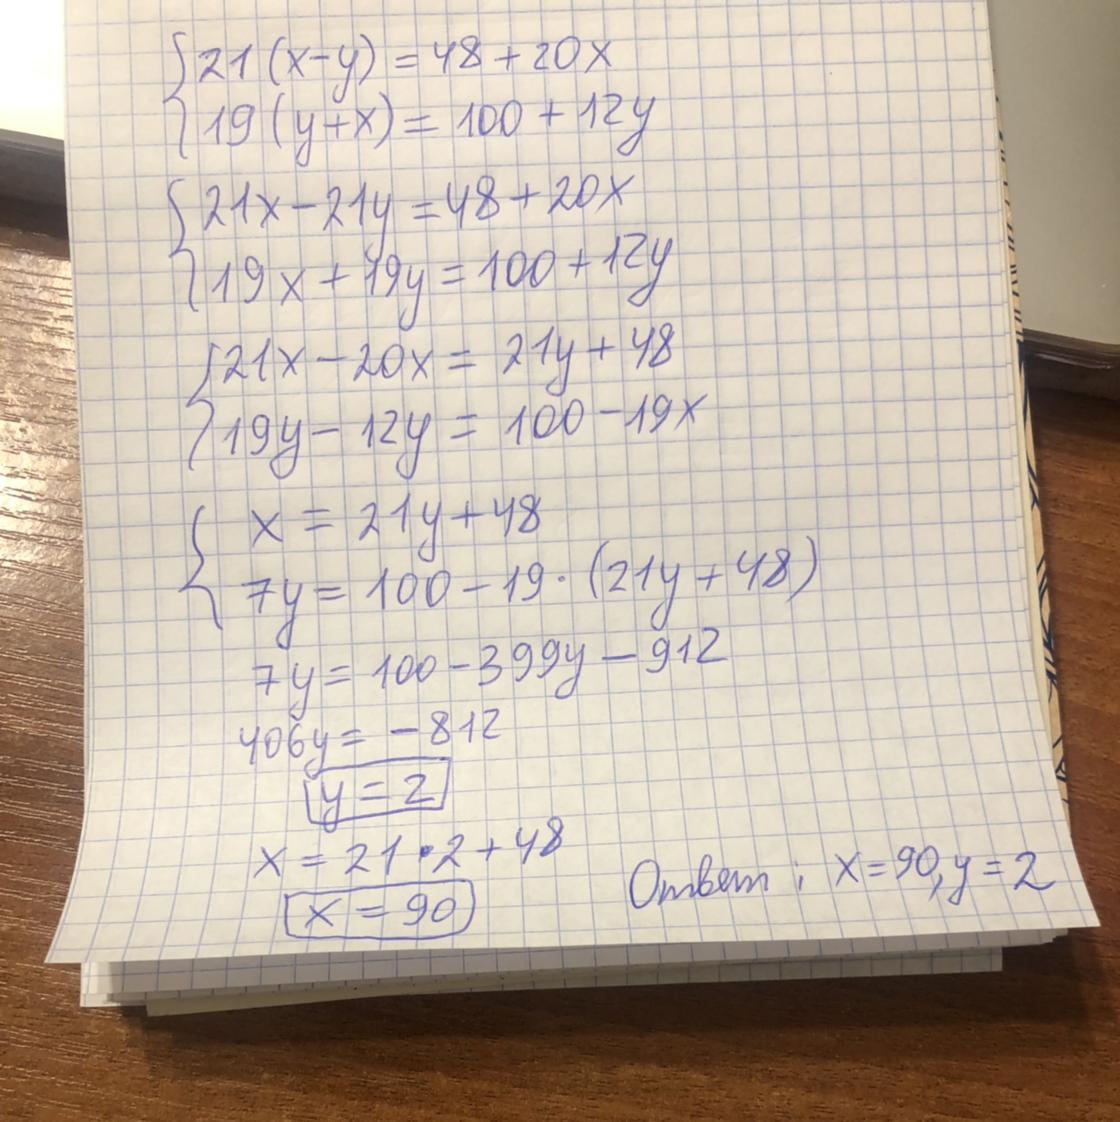 21(x-y) = 48+20x
19(y+x) = 100+12y
21x-21y = 48+20x
19x+19y = 100+12y
21x-20x = 21y+48
19y-12y = 100-19x
x = 21y+48
7y = 100-19·(21y+48)
7y = 100-399y-912
406y = -812
y = 2
x = 21·2+48
x = 90
Ответ: x=90, y=2